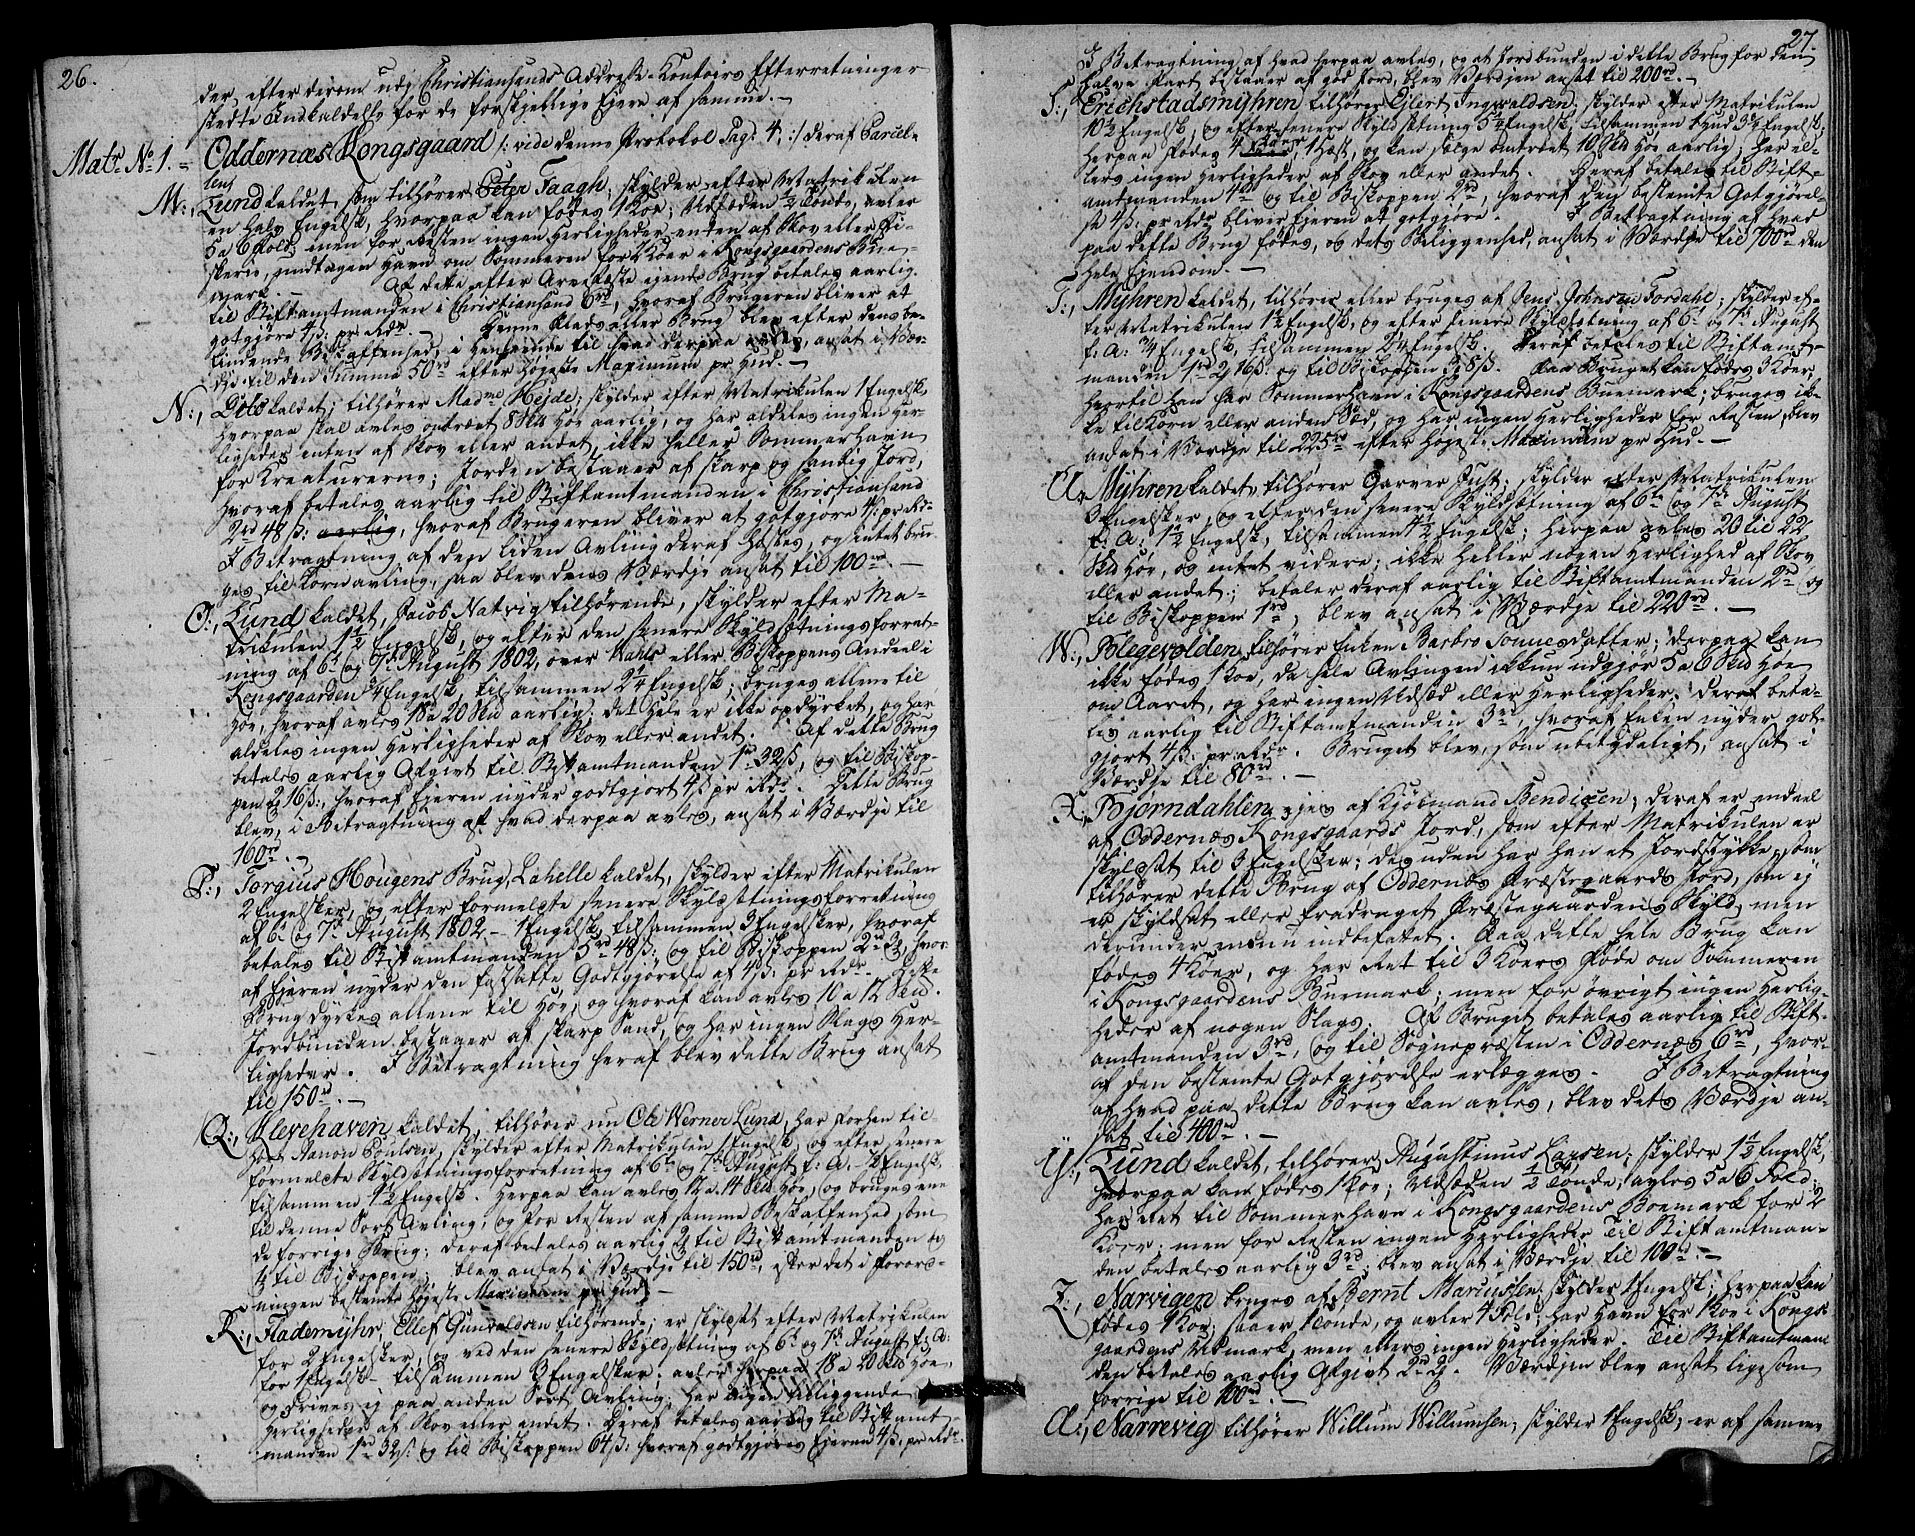 26.
der, efter derom udj Christiansands Addresse-Kontoirs Efterretninger
skedte Indkaldelse for de forskjellige Ejere af samme. —
Matr. No 1. = Oddernæs Kongsgaard /: vide denne Protokol Pag: 4, :/ deraf Parcel-
len
M:, Lund kaldet, som tilhører Peter Taagh; skylder efter Matrikulen
en halv Engelsk, hvorpaa kan fødes 1 Koe; Udsæden ½ Tønde, avler
5 a 6 Fold; men for Resten ingen Herligheder enten af Skov eller Fi-
skerie, undtagen Havn om Sommeren for 2 Køer i Kongsgaardens Bue-
mark. — Af dette efter Arvefæste ejende Brug betales aarlig
til Stiftamtmanden i Christiansand 6 rd, hvoraf Brugeren bliver at
gotgjøre 4 ß pr. Rdr. — Denne Plads eller Brug blev efter dens be-
findende Beskaffenhed, i Henseende til hvad derpaa avles, ansat i Vær-
die til den Summa 50 rd efter højeste Maximum pr Hud. —
N:, Dito kaldet, tilhører Madme Hejde; skylder efter Matrikulen 1 Engelsk,
hvorpaa skal avles omtræt 8 Skd Høe aarlig, og har aldeles ingen Her-
ligheder enten af Skov eller andet, ikke heller Sommerhavn
for Kreaturerne; Jorden bestaaer af skarp og sandig Jord,
hvoraf betales aarlig til Stiftamtmanden i Christiansand
2 rd 48 ß: aarlig, hvoraf Brugeren bliver at gotgjøre 4 ß: pr Rd:
I Betragtning af den liden Avling deraf høstes, og intet bru-
ges til Kornavling, saa blev dens Værdje ansat til 100 rd. —
O:, Lund kaldet, Jacob Natvig tilhørende, skylder efter Ma-
trikulen 1½ Engelsk, og efter den senere Skyldsætningsforret-
ning af 6te og 7de August 1802, over Karls eller Biskoppens Andeel i
Kongsgaarden ¾ Engelsk, tilsammen 2¼ Engelsk; bruges allene til
Høe, hvoraf avles 18 a 20 Skd aarlig; det hele er ikke opdyrket, og har
aldeles ingen Herligheder af Skov eller andet. Af dette Brug
betales aarlig Afgivt til Stiftamtmanden 1 rd 32 ß, og til Biskop-
pen 2 16 ß:, hvoraf Ejeren nyder godtgjort 4 ß pr Rdr. Dette Brug
blev, i Betragtning af hvad derpaa avles, ansat i Værdje til
160 rd. —
P:, Torgius Hougens Brug, Lahelle kaldet, skylder efter Matrikulen
2 Engelsker, og efter formeldte senere Skyldsætningsforretning
af 6te og 7de August 1802, — 1 Engelsk, tilsammen 3 Engelsker, hvoraf
betales til Stiftamtmanden 5 rd 48 ß: og til Biskoppen 2 rd 3, hvor-
af Ejeren nyder den fastsatte Godtgjørelse af 4 ß: pr Rdr. Dette
Brug dyrkes allene til Høe, og hvoraf kan avles 10 a 12 Skd.
Jordbunden bestaaer af skarp Sand, og har ingen Slags Her-
ligheder. I Betragtning heraf blev dette Brug ansat
til 150 rd. —
Q:, Klevehaven kaldet, tilhører nu Ole Werner Lund, har forhen til-
hørt Aanon Poulsen, skylder efter Matrikulen 1 Engelsk, og efter senere
formeldte Skyldsætningsforretning af 6te og 7de August f: A. ½ Engelsk,
tilsammen 1½ Engelsk. Herpaa kan avles 12 a 14 Skd Høe, og bruges ene
til denne Sort Avling, og for Resten af samme Beskaffenhed som
de forrige Brug; deraf betales aarlig 2 til Stiftamtmanden og
4 til Biskoppen; blev ansat i Værdje til 150 rd, efter det i Forord-
ningen bestemte højeste Maximum pr Hud. —
R:, Flademyhr, Ellef Gunvaldsen tilhørende; er skyldsat efter Matrikulen
for 2 Engelsker, og ved den senere Skyldsætning af 6te og 7de August f: A:
for 1 Engelsk — tilsammen 3 Engelsker; avler herpaa 18 a 20 Skd Høe,
og drives ej paa anden Sort Avling; har ingen tilliggende
Herligheder af Skov eller andet. Deraf betales aarlig til Stiftamt-
manden 1 rd 32 ß. og til Biskoppen 64 ß: hvoraf godtgjøres Ejeren 4 ß: pr Rdr.
27.
I Betragtning af hvad herpaa avles, og at Jordbunden i dette Brug for den
halve Part bestaaer af god Jord, blev Værdjen ansat til 200 rd. —
S:, Erichstadsmyhren tilhører Ejlert Ingvaldsen; skylder efter Matrikulen
10½ Engelsk, og efter senere Skyldsætning 5¼ Engelsk, tilsammen 1 Hud 3¾ Engelsk;
herpaa fødes 4 Køer, 1 Hæst, og kan sælge omtræt 10 Skd Høe aarlig; har el-
lers ingen Herligheder af Skov eller andet. Deraf betales til Stift-
amtmanden 4 rd og til Biskoppen 2 rd, hvoraf den bestemte Gotgjørel-
se 4 ß, pr Rdr bliver Ejeren at gotgjøre. I Betragtning af hvad
paa dette Brug fødes, og dets Beliggenhed, ansat i Værdje til 700 rd den
hele Ejendom. —
T:, Myhren kaldet, tilhører eller bruges af Jens Johnsen Fordahl; skylder ef-
ter Matrikulen 1½ Engelsk, og efter senere Skyldsætning af 6te og 7de August
f: A: ¾ Engelsk, tilsammen 2¼ Engelsk. Deraf betales til Stiftamt-
manden 1 rd 2 16 ß: og til Biskoppen 3 8 ß. Paa Bruget kan fødes 3 Køer,
hvortil han har Sommerhavn i Kongsgaardens Buemark; bruges ik-
ke til Korn eller anden Sæd, og har ingen Herligheder for Resten; blev
ansat i Værdje til 225 rd efter højeste Maximum pr Hud. —
U:, Myhren kaldet, tilhører Garver Just; skylder efter Matrikulen
3 Engelsker, og efter den senere Skyldsætning af 6te og 7de August
f: A: 1½ Engelsk, tilsammen 4½ Engelsk; herpaa avles 20 til 22
Skd Høe, og intet videre; ikke heller nogen Herlighed af Skov
eller andet; betaler deraf aarlig til Stiftamtmanden 2 rd og
til Biskoppen 1 rd, blev ansat i Værdje til 220 rd. —
W:, Blegevolden tilhører Enken Barbro Tonnesdatter; derpaa kan
ikke fødes 1 Koe, da hele Avlingen ikkun udgjør 5 a 6 Skd Høe
om Aaret, og har ingen Udsæd eller Herligheder. Deraf beta-
les aarlig til Stiftamtmanden 3 rd, hvoraf Enken nyder got-
gjort 4 ß: pr: Rdr. Bruget blev, som ubetydeligt, ansat i
Værdje til 80 rd. —
X:, Bjørndahlen ejes af Kjøbmand Bendixen; deraf er endeel
af Oddernæs Kongsgaards Jord, som efter Matrikulen er
skyldsat til 3 Engelsker; desuden har han et Jordstykke, som
tilhører dette Brug af Oddernæs Præstegaards Jord, som ej
er skyldsat eller fradraget Præstegaardens Skyld, men
derunder menes indbefattet. Paa dette hele Brug kan
fødes 4 Køer, og har Ret til 3 Køers Føde om Sommeren
i Kongsgaardens Buemark; men for øvrigt ingen Herlig-
heder af nogen Slags. Af Bruget betales aarlig til Stift-
amtmanden 3 rd, og til Sognepræsten i Oddernæs 6 rd, hvor-
af den bestemte Gotgjørelse erlægges. I Betragtning
af hvad paa dette Brug kan avles, blev dets Værdje an-
sat til 400 rd. —
Y:, Lund kaldet, tilhører Augustinus Larsen; skylder 1½ Engelsk,
hvorpaa kan fødes 1 Koe; Udsæden ½ Tønde, avles 5 a 6 Fold;
har Ret til Sommerhavn i Kongsgaardens Boemark for 2
Køer; men for Resten ingen Herligheder. Til Stiftamtman-
den betales aarlig 3 rd; blev ansat i Værdje til 100 rd. —
Z:, Narvigen bruges af Bernt Mariussen; skylder 1 Engelsk; herpaa kan
fødes 1 Koe; saaer 1 Tønde, og avler 4 Fold; har Havn for 1 Koe i Kongs-
gaardens Udmark, men ellers ingen Herligheder. Til Stiftamtman-
den betales aarlig Afgivt 2 rd 2. Værdjen blev ansat ligesom
forrige til 100 rd. —
Æ:, Narrevig tilhører Willum Willumsen; skylder 1 Engelsk; er af samme